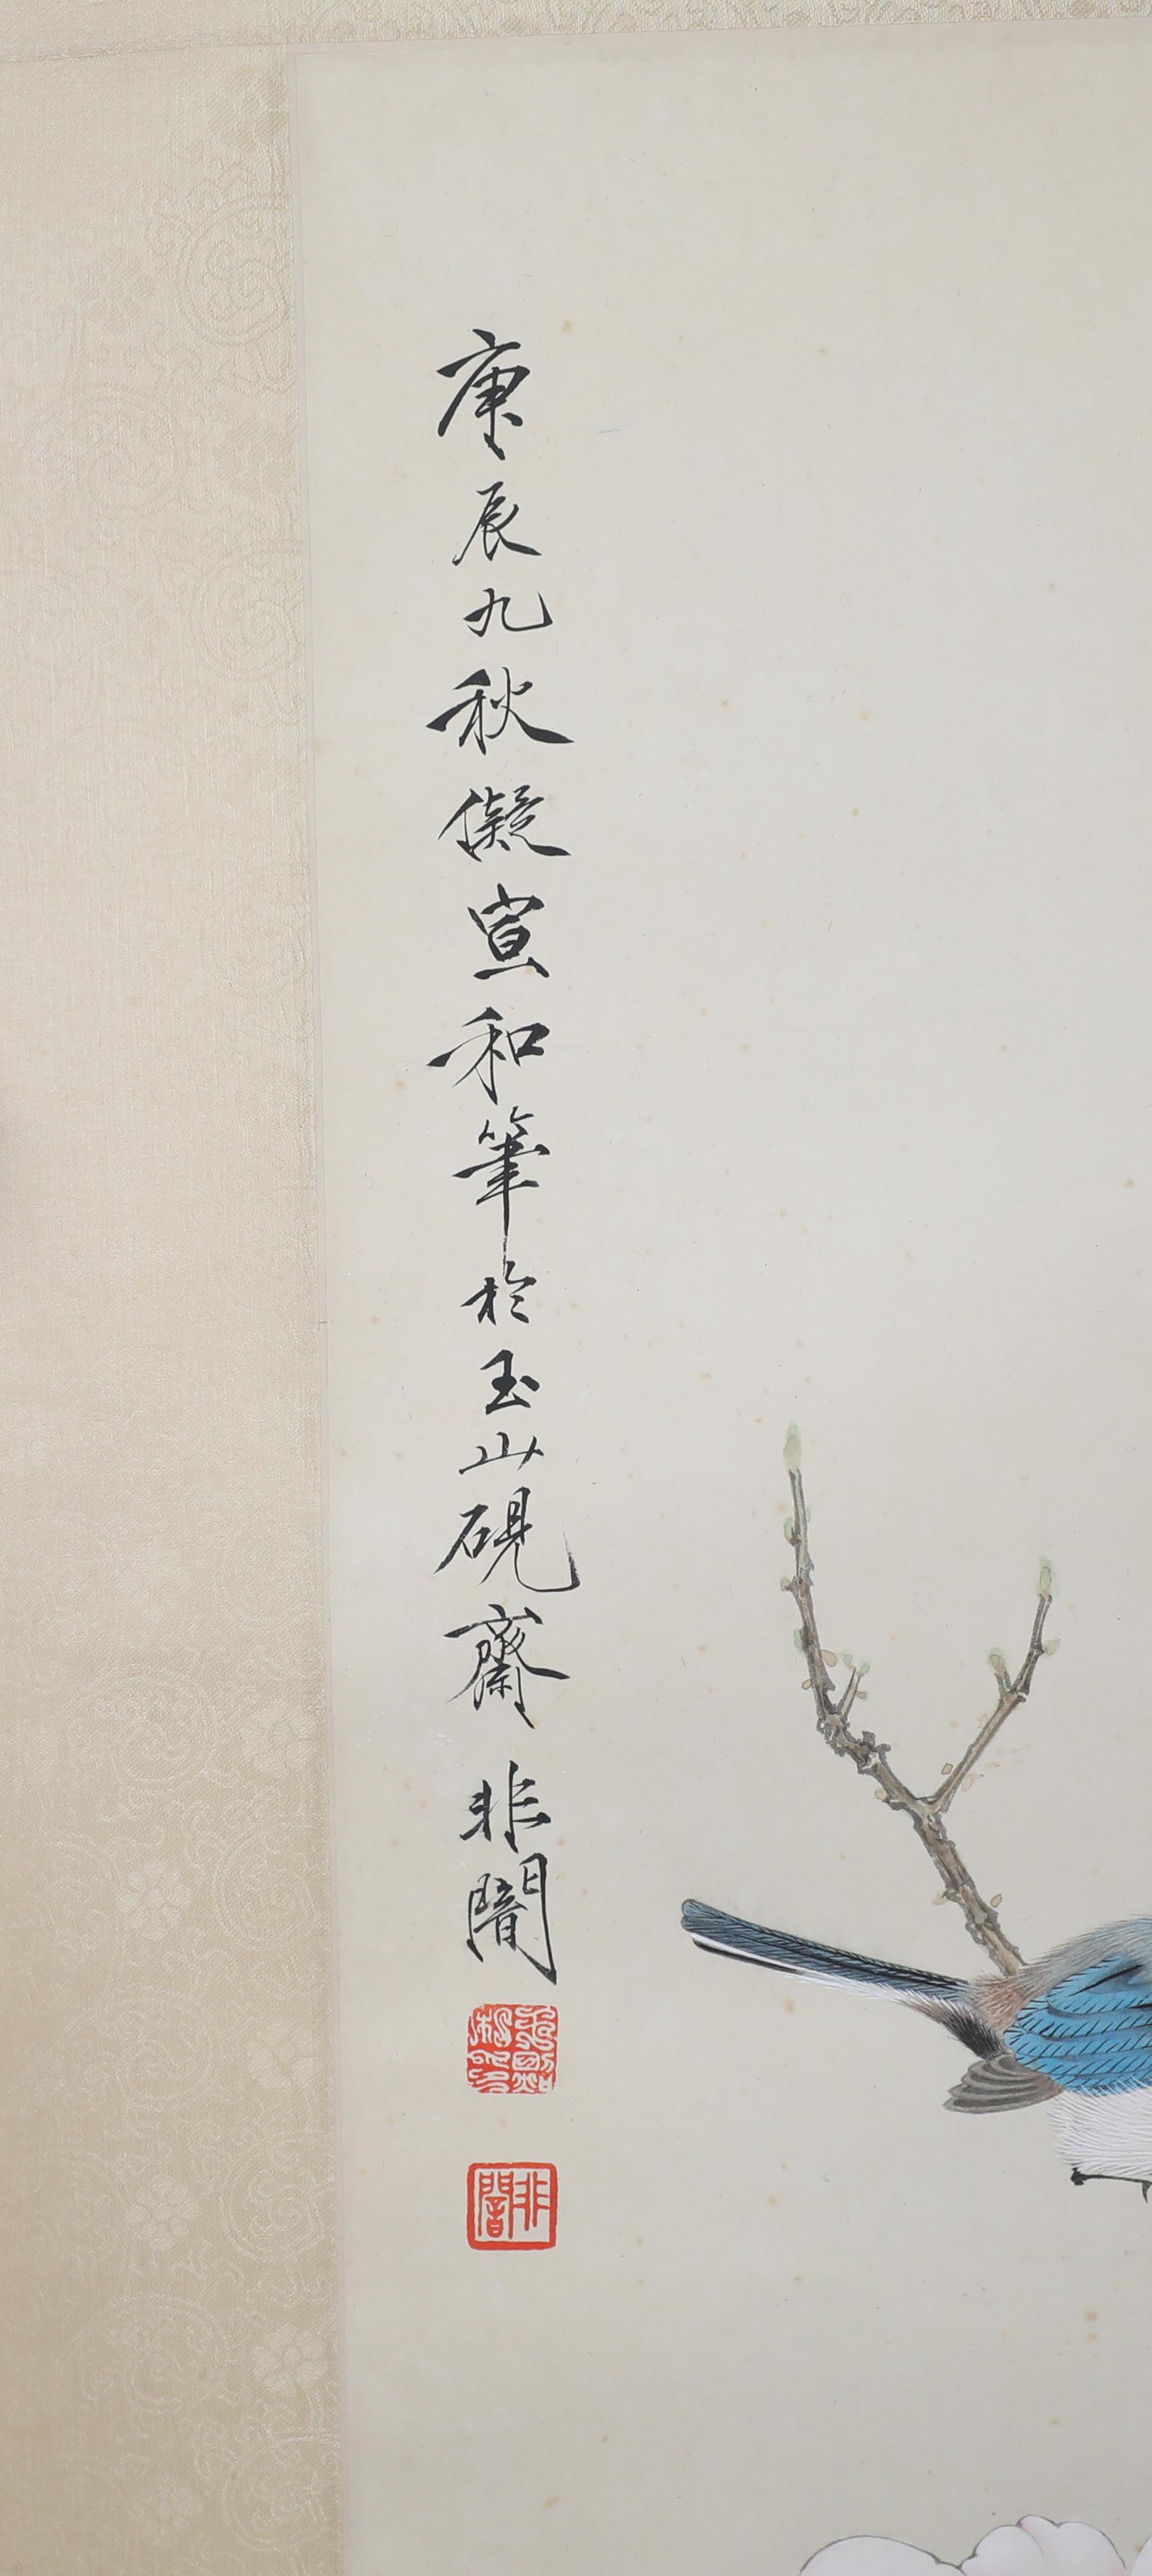 庚辰九秋儗宣和筆於玉山硯齋非闇
非闇